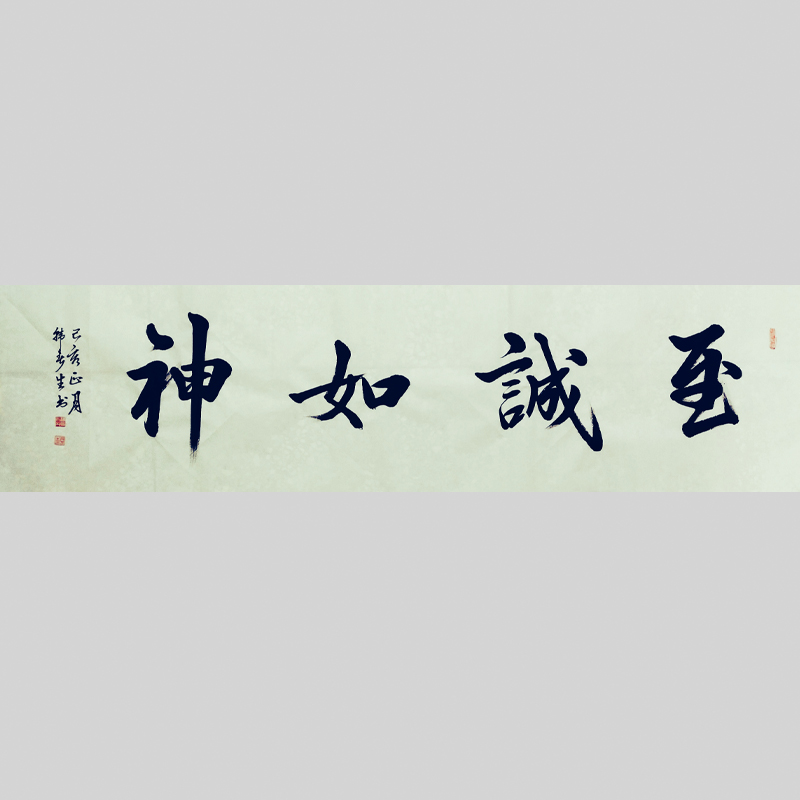 至誠如神
己亥正月
韩冬生书